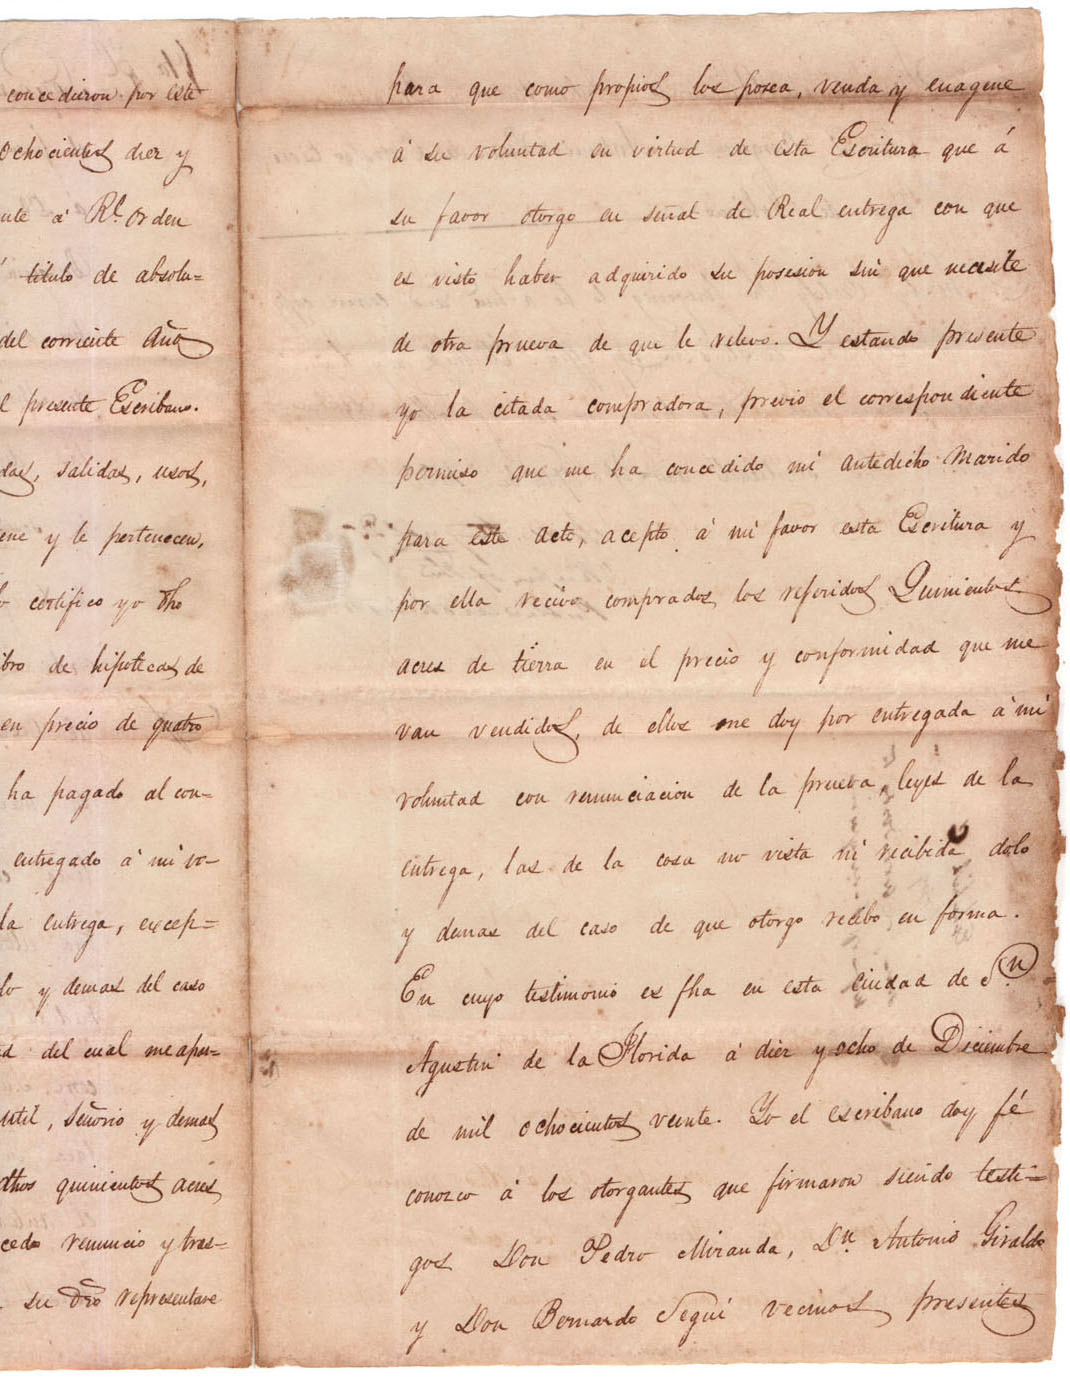 concedieron por este
ochocientos diez y
nte á Rl. Orden
título de absolu=
del corriente Año
l presente Escribano.
das, salidas, usos,
ene y le pertenecen,
certifico yo dho
ibro de hipotecas de
en precio de quatro
ha pagado al con=
entregado á mi vo=
la entrega, excep=
lo y demas del caso
d del cual me apar=
util, señorio y demas
dhos quinientos acres
cedo renuncio y tras=
su dro representare
para que como propios los posea, venda y enagene
á su voluntad en virtud de esta Escritura que á
su favor otorgo en señal de Real entrega con que
es visto haber adquirido su posesion sin que necesite
de otra prueva de que le relevo. Y estando presente
yo la citada compradora, previo el correspondiente
permiso que me ha concedido mi antedicho Marido
para este acto, acepto á mi favor esta Escritura y
por ella recivo comprados los referidos Quinientos
acres de tierra en el precio y conformidad que me
van vendidos, de ellos me doy por entregada á mi
voluntad con renunciacion de la prueva, leyes de la
entrega, las de la cosa no vista ni recibida dolo
y demas del caso de que otorgo recibo en forma.
En cuyo testimonio es fha en esta ciudad de Sn.
Agustin de la Florida á diez y ocho de Diciembre
de mil ochocientos veinte. Yo el escribano doy fé
conozco á los otorgantes que firmaron siendo testi=
gos Don Pedro Miranda, Dn. Antonio Giraldo
y Don Bernardo Segui vecinos presentes